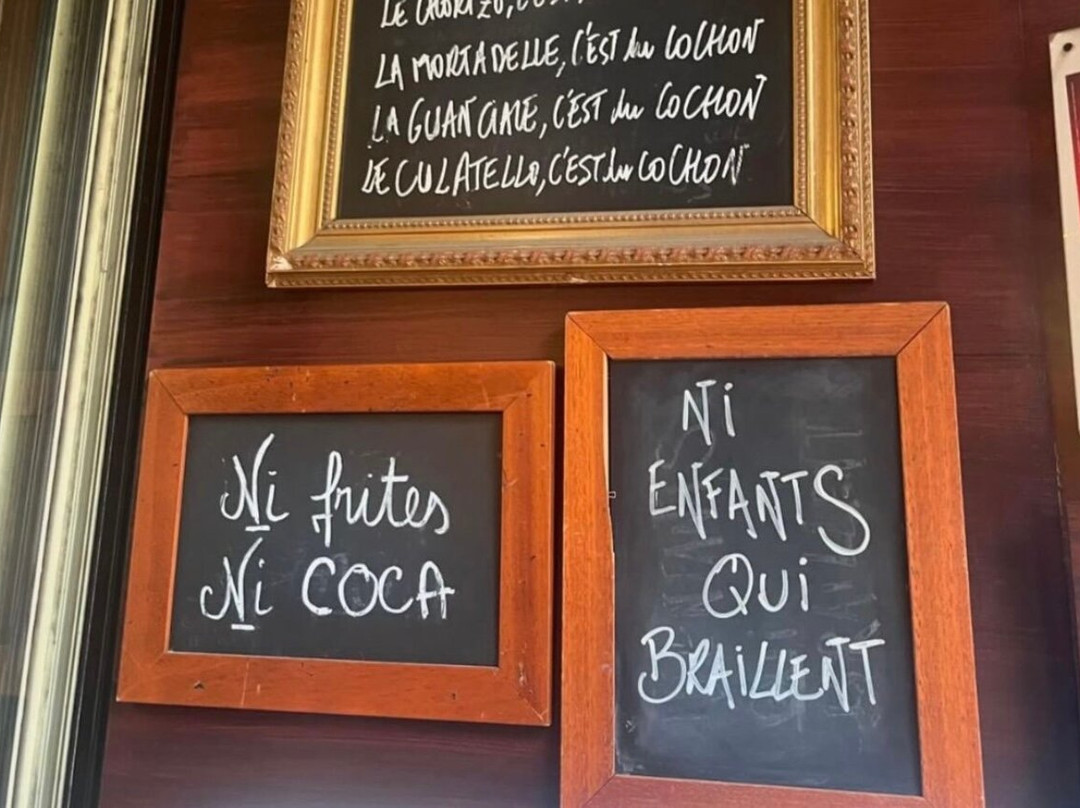 LE CHORIZO, C'EST
LA MORTADELLE, C'EST du COCHON
LA GUANCIALE, C'EST du COCHON
LE CULATELLO, C'EST du COCHON
Ni frites
Ni COCA
Ni
ENFANTS
QUi
BRAiLLENT